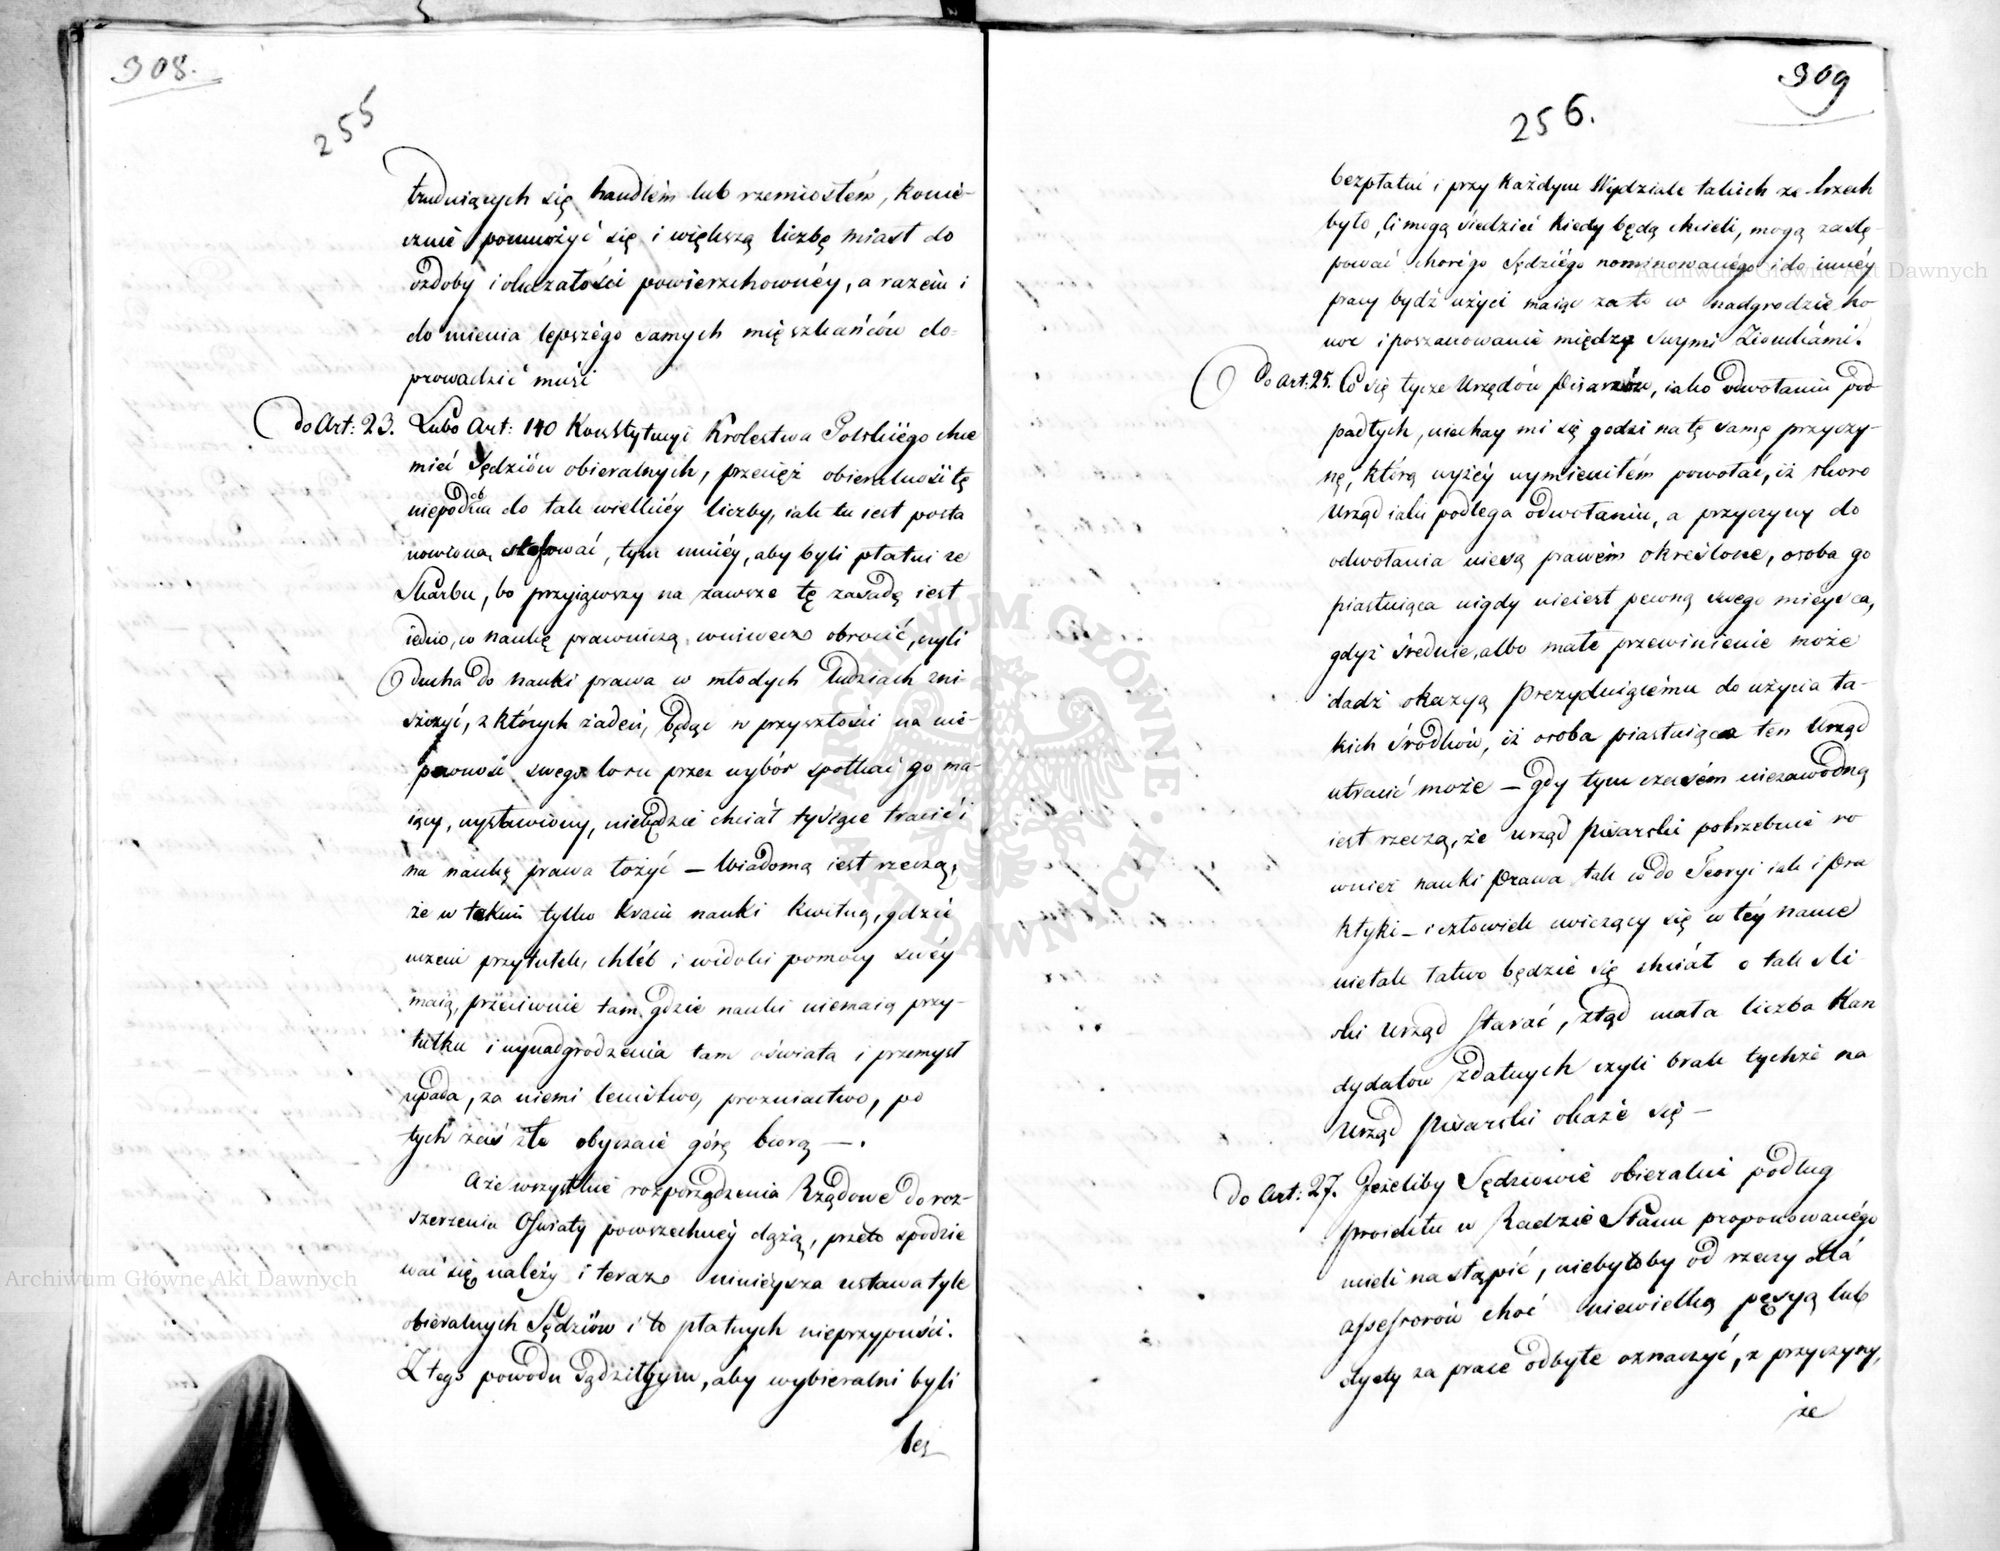 308.
255
trudniących się handlem lub rzemiosłem, konie-
cznie pomnożyć się i większą liczbę miast do
ozdoby i okazałości powierzchownéy, a razem i
do mienia lepszégo samych mięszkańców do-
prowadzić musi
do Art: 23. Lubo Art: 140 Konstytucyi Krolestwa Polskiégo chce
mieć Sędziów obieralnych, przecież obieralność tę
niepodobna do tak wielkiéy liczby, iak tu iest posta
nowiona, stosować, tym mniéy, aby byli płatni ze
Skarbu, bo przyiąwszy na zawsze tę zasadę iest
iedno, co naukę prawniczą wniwecz obrócić, czyli
ducha do nauki prawa w młodych ludziach zni-
szczyć, z których żaden, będąc w przyszłości na nie-
pewność swego losu przez wybór spotkać go ma-
iący, wystawiony, niebędzie chciał tysiące tracić i
na naukę prawa łożyć — Wiadomą iest rzeczą,
że w takim tylko kraiu nauki kwitną, gdzie
uczeni przytułek, chléb i widoki pomocy swéy
maią, przeciwnie tam gdzie nauki niemaią przy-
tułku i wynadgrodzenia tam oświata i przemysł
upada, za niemi lenistwo, prozniactwo, po
tych zaś złe obyczaie górę biorą —.
Aże wszystkie rozporządzenia Rządowe do roz-
szerzenia Oświaty powszechnéy dążą, przeto spodzie
wać się należy i teraz ninieysza ustawa tyle
obieralnych Sędziów i to płatnych nieprzypuści.
Z tego powodu sądziłbym, aby wybieralni byli
bez
309
256.
bezpłatni i przy każdym Wydziale takich ze trzech
było, ci mogą siedzieć kiedy będą chcieli, mogą zastę-
pować chorégo Sędziégo nominowanégo i do innéy
pracy bydź użyci maiąc za to w nadgrodzie ho
nor i poszanowanie między swymi Ziomkami.
Do Art: 25. Co się tycze Urzędów Pisarzów, iako odwołaniu pod
padłych, niechay mi się godzi na tę samę przyczy-
nę, którą wyżéy wymieniłem powołać, iż skoro
Urząd iaki podlega odwołaniu, a przyczyny do
odwołania niesą prawem określone, osoba go
piastuiąca nigdy nieiest pewną swego mieysca,
gdyż średnie, albo małe przewinienie może
dadź okazyą Prezyduiącému do użycia ta-
kich środków, iż osoba piastuiąca ten Urząd
utracić może — gdy tym czasém niezawodną
iest rzeczą, że urząd Pisarski potrzebuie ro
wnież nauki Prawa tak co do Teoryi iak i Pra
ktyki — i człowiek cwiczący się w téy nauce
nietak łatwo będzie się chciał o tak śli-
ski Urząd starać, ztąd mała liczba Kan
dydatów zdatnych czyli brak tychże na
Urząd Pisarski okaże się —
do Art: 27. Jeżeliby Sędziowie obieralni podług
proiektu w Radzie Stanu proponowanégo
mieli nastąpić, niebyłoby od rzeczy dla
assessorów choć niewielką pęsyą lub
dyety za prace odbyte oznaczyć, z przyczyny,
że